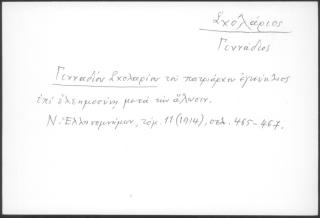 Σχολάριος
Γεννάδιος
Γενναδίου Σχολαρίου τοῦ πατριάρχου ἐγκύκλιος
ἐπὶ ἐλεημοσύνῃ μετὰ τὴν ἅλωσιν.
Ν. Ἑλληνομνήμων, τόμ. 11 (1914), σελ. 465-467.